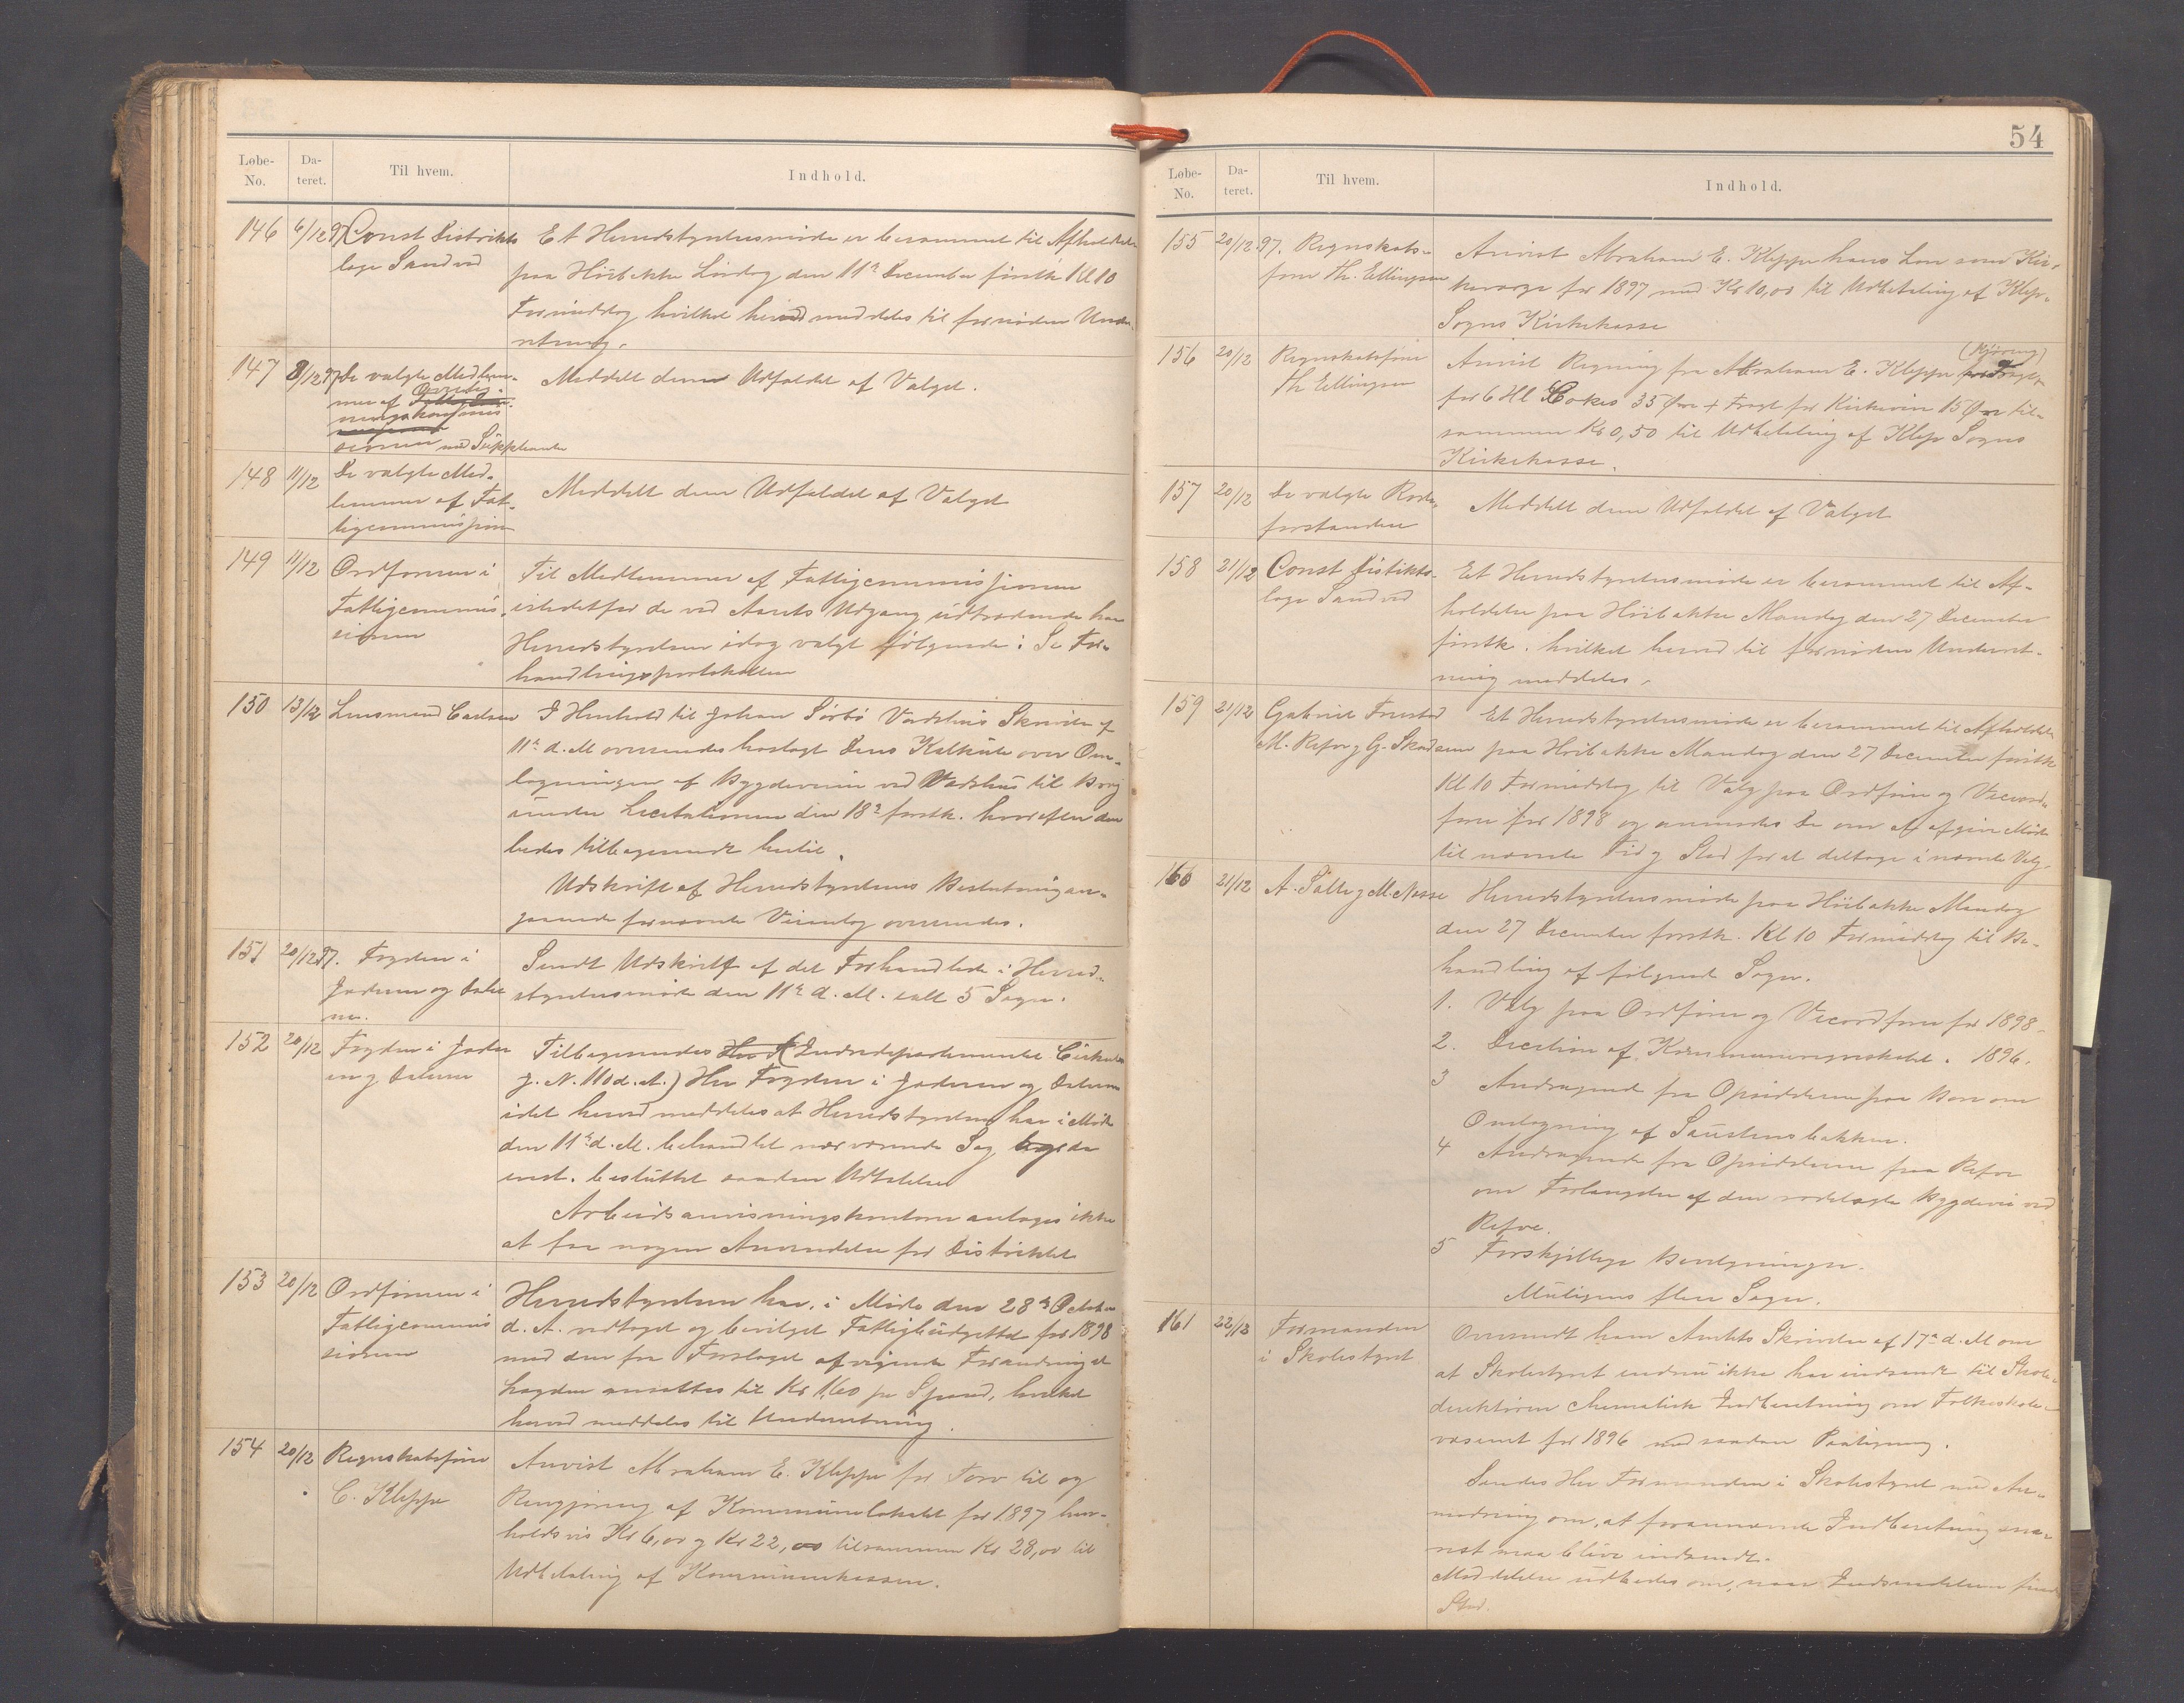 54
Løbe-No. Da-teret. Til hvem. Indhold.
146 6/12 97 Const Distrikts Et Herredstyrelsesmøde er berammet til Afholdelse
læge Sandved paa Hübakke Lördag den 11te December förstk Kl 10
Formiddag hvilket herved meddeles til fornöden Under
retning.
147 8/12 97 De valgte Medlem- Meddelt dem Udfaldet af Valget.
mer af
sionen med Suppleanter
148 11/12 De valgte Med- Meddelt dem Udfaldet af Valget
lemmer af Fat-
tigcommissjon
149 11/12 Ordföreren i Til Medlemmer af Fattigcommissjionen
Fattigcommis- istedetfor de ved Aarets Udgang udtrædende har
sionen Herredstyrelsen idag valgt fölgende: Se For-
handlingsprotokollen
150 13/12 Lensmand Carlsen I Henhold til Johan Sörbö Vadshus Skrivelse af
11te d.M oversendes hoslagt Deres Kalkule over Om-
lægningen af Bygdeveien ved Vadshus til Brug
under Licitationen den 18de forstk. hvorefter den
bedes tilbagesendt hertil.
Udskrift af Herredstyrelsens Beslutning an-
gaaende fornævnte Veianlæg oversendes.
151 20/12 97. Fogden i Sendt Udskrift af det Forhandlede i Herred-
Jæderen og Dale styrelsesmöde den 11te d.M. ialt 5 Sager.
ne.
152 20/12 Fogden i Jæder Tilbagesendes Her A (Indredepartementets Cirkulær
en og Dalerne J.N. 110 d.A.) Her Fogden i Jæderen og Dalerne
idet herved meddeles at Herredstyrelsen har i Möde
den 11te d.M. behandlet nærværende Sag og da
enst. besluttet saadan Udtalelse
Arbeidsanvisningskontorer antages ikke
at faa nogen Anvendelse for Distriktet
153 20/12 Ordföreren i Herredstyrelsen har i Möde den 28de October
Fattigcommis d.A. vedtaget og bevilget Fattigbudgettet for 1898
sionen med den fra Forslaget afvigende Forandring at
Lægden ansættes til Kr 160 pr Spand, hvilket
herved meddeles til Underretning
154 20/12 Regnskabsförer Anvist Abraham E. Kleppe for Torv til og
C. Kleppe Rengjöring af Kommunelokalet for 1897 hen-
holdsvis Kr 6,00 og Kr 22,00 tilsammen Kr 28,00 til
Udbetaling af Kommunekassen.
Løbe-No. Da-teret. Til hvem. Indhold.
155 20/12 97. Regnskabs- Anvist Abraham E. Kleppe hans Lön som Kir-
förer Th. Ellingsen keværge for 1897 med Kr 10,00 til Udbetaling af Klep
Sogns Kirkekasse
156 20/12 Regnskabsförer Anvist Regning fra Abraham E. Kleppe (Kjöring)
Th Ellingsen for 6 Hl Cokes 35 Öre + Fragt for Kirkevin 15 Öre til-
sammen Kr 0,50 til Udbetaling af Klep Sogns
Kirkekasse.
157 20/12 De valgte Rode- Meddelt dem Udfaldet af Valget
forstandere
158 21/12 Const Distikts- Et Herredstyrelsesmöde er berammet til Af-
læge Sandved holdelse paa Hübakke Mandag den 27 December
förstk. hvilket herved til fornöden Underret-
ning meddeles.
159 21/12 Gabriel Et Herredstyrelsesmöde er berammet til Afholdelse
M. Refve og G. Skadsem paa Hübakke Mandag den 27 December förstk
Kl 10 Formiddag til Valg paa Ordförer og Viceord-
förer for 1898 og anmodes De om at afgive Möde
til nævnte Tid og Sted for at deltage i nævnte Valg.
160 21/12 A. Salte og M. Nesse Herredstyrelsesmöde paa Hübakke Mandag
den 27 December förstk. Kl 10 Formiddag til Be-
handling af fölgende Sager.
1. Valg paa Ordförer og Viceordförer for 1898
2. Decision af Kommuneregnskabet 1896.
3 Andragende fra Opsidderne paa Bore om
Omlægning af bakken.
4 Andragende fra Opsidderne paa Refve
om Forlængelse af den rodelagte Bygdevei ved
Refve.
5 Forskjellige Bevilgninger.
Muligens flere Sager.
161 22/12 Formanden Oversendt ham Amtets Skrivelse af 17de d.M om
i Skolestyret at Skolestyret endnu ikke har indsendt til Skole-
direktören chematisk Indberetning om Folkeskole-
væsenet for 1896 med saadan Paategning.
Sendes Her Formanden i Skolestyret med An-
modning om, at forannævnte Indberetning sna-
rest maa blive indsendt.
Meddelelse udbedes om, naar Indsendelsen finder
Sted.